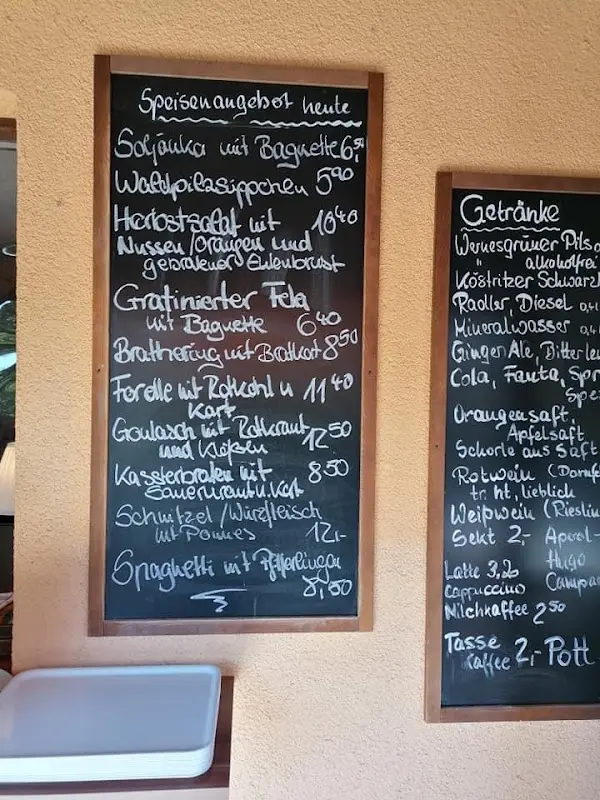 Speisenangebot heute
Soljanka mit Baguette 6,50
Waldpilzsüppchen 5 90
Herbstsalat mit 10 40
Nüssen/Orangen und
gebratener Entenbrust
Gratinierter Feta
mit Baguette 6 40
Brathering mit Bratkart 8 50
Forelle mit Rotkohl u 11 40
Kart
Goulasch mit Rotkraut
und Klößen 12 50
Kasslerbraten mit 8 50
Sauerkraut u. Kart
Schnitzel/Würzfleisch
mit Pommes 12,-
Spaghetti mit Pfifferlingen
8,50
Getränke
Wernesgrüner Pils
" alkoholfrei
Köstritzer Schwarz
Radler, Diesel 0,4
Mineralwasser 0,4
Ginger Ale, Bitter Le
Cola, Fanta, Spr
Spe
Orangensaft,
Apfelsaft
Schorle aus Saft
Rotwein (Dornf
tr. ht, lieblich
Weißwein (Rieslin
Sekt 2,- Aperol-
Hugo
Latte 3,20 Campa
Cappuccino
Milchkaffee 2 50
Tasse
Kaffee 2,- Pott